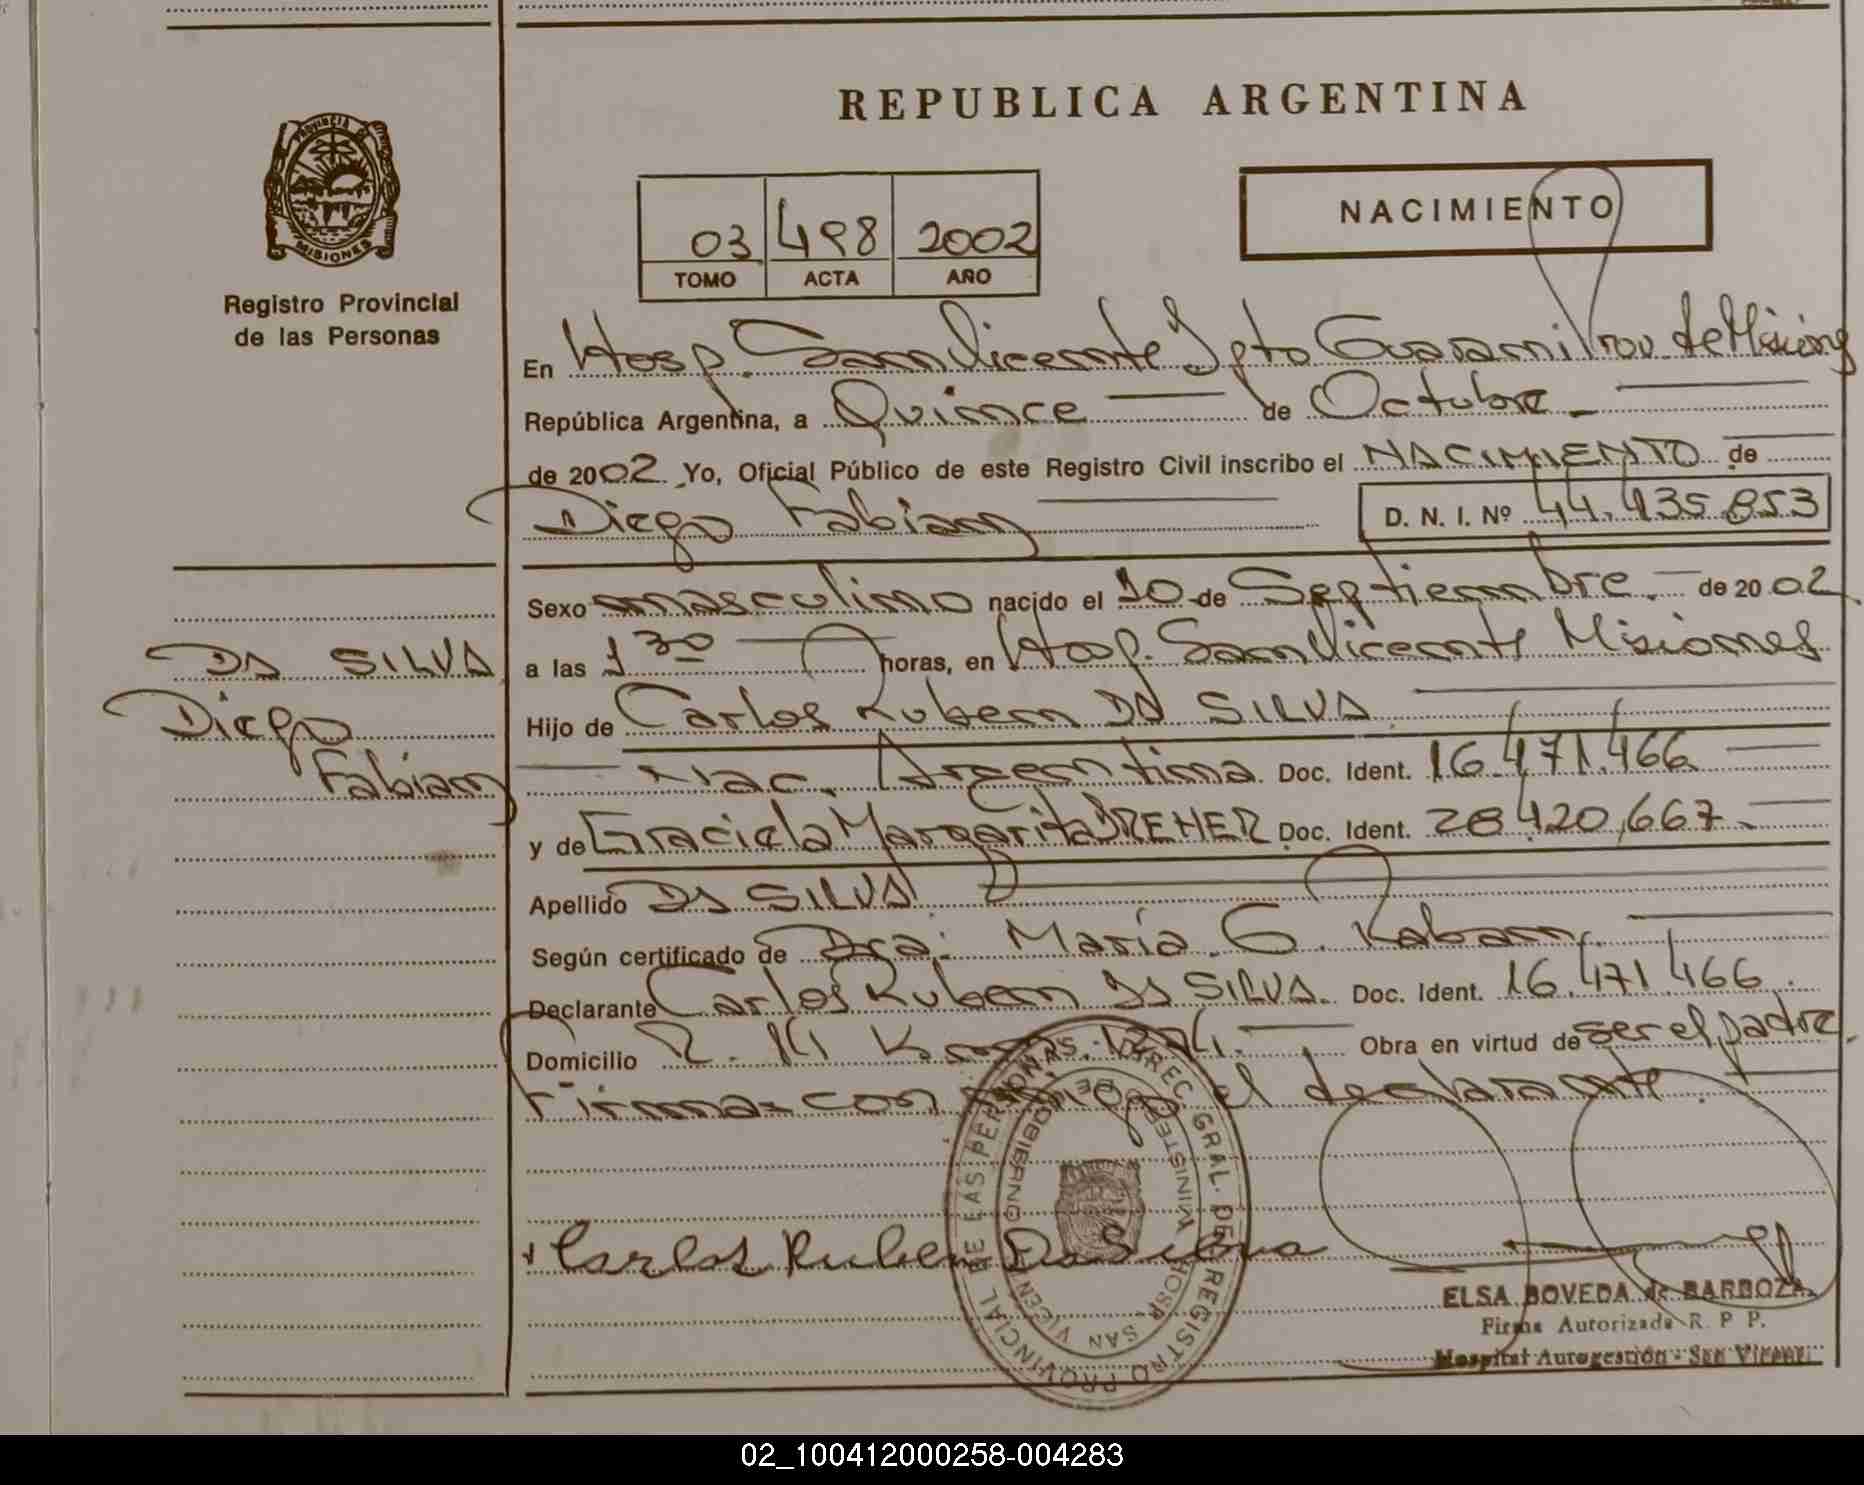 REPUBLICA ARGENTINA
PROVINCIA DE
MISIONES
Registro Provincial
de las Personas
03 498 2002
TOMO ACTA AÑO
NACIMIENTO
En Hosp. San Vicente Dpto Guarani Prov. de Misiones
República Argentina, a Quince de Octubre
de 2002 Yo, Oficial Público de este Registro Civil inscribo el NACIMIENTO de
Diego Fabian D. N. I. Nº 44.435.853
Sexo masculino nacido el 10 de Septiembre de 2002
a las 1 30 horas, en Hosp. San Vicente Misiones
Hijo de Carlos Ruben DA SILVA
Nac. Argentina Doc. Ident. 16.471.466
y de Graciela Margarita BREMER Doc. Ident. 28.420.667
Apellido DA SILVA
Según certificado de Dra. Maria G. Raban
Declarante Carlos Ruben DA SILVA Doc. Ident. 16.471.466
Domicilio Obra en virtud de ser el padre
Firma con el declarante
DA SILVA
Diego
Fabian
Carlos Ruben Da Silva
REGISTRO PROVINCIAL DE LAS PERSONAS
DIREC. GRAL. DEL
MINISTER DE GOBIERNO
HOSP. SAN VICENTE
ELSA BOVEDA de BARBOZA
Firma Autorizada R. P. P.
Hospital Autogestión - San Vicente
02_100412000258-004283